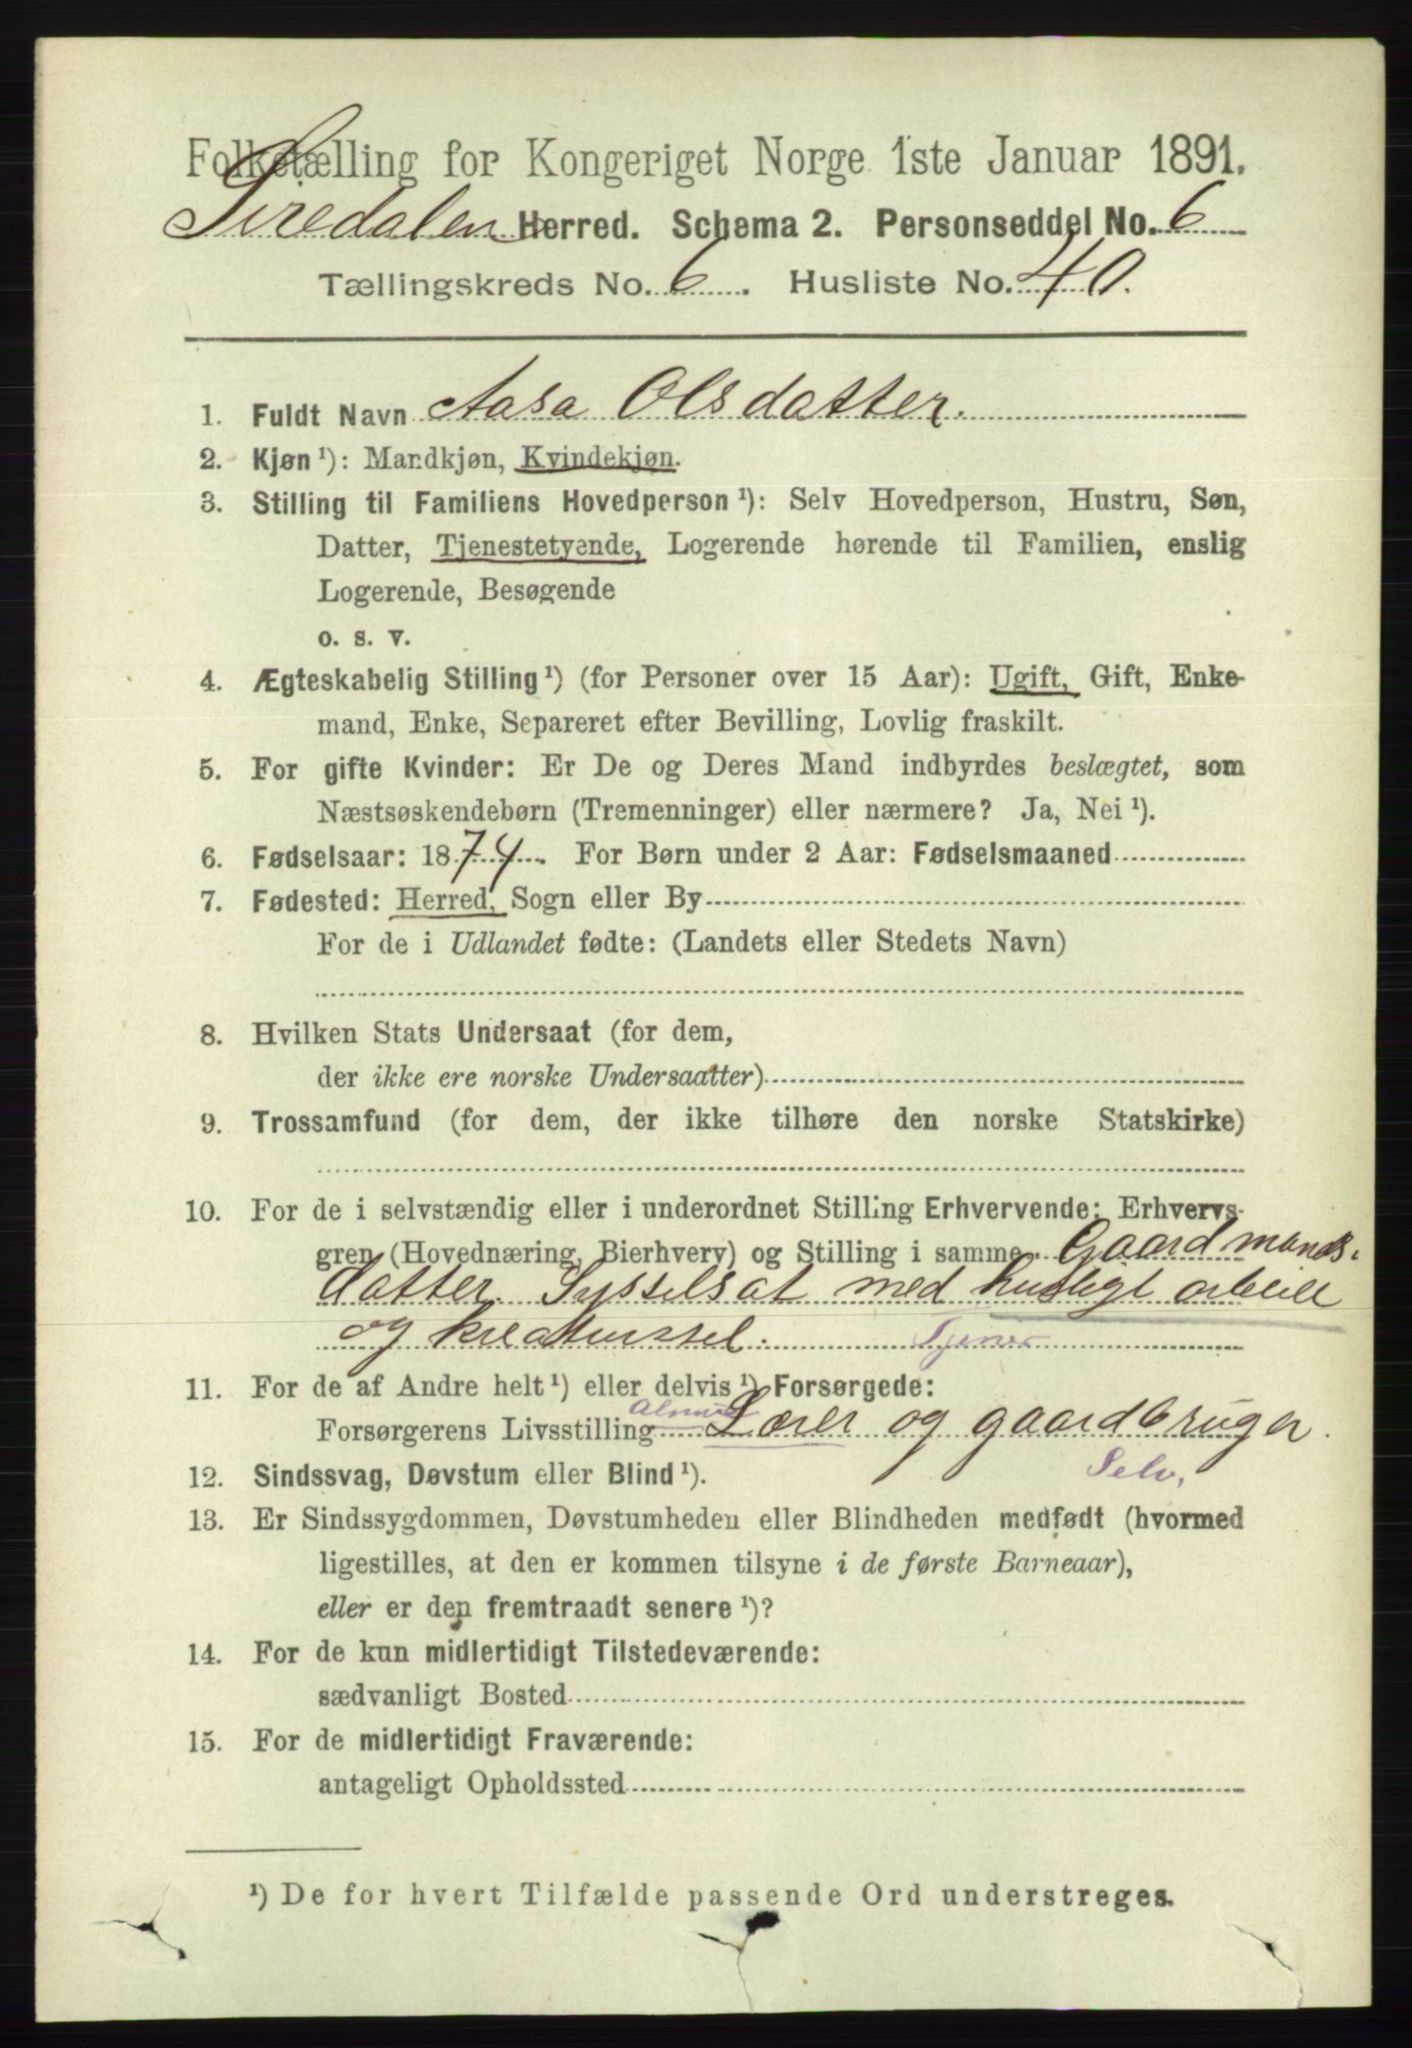 Folketælling for Kongeriget Norge 1ste Januar 1891.
Siredalens Herred. Schema 2. Personseddel No. 6
Tællingskreds No. 6. Husliste No. 40.
1. Fuldt Navn Aasa Olsdatter.
2. Kjøn ¹): Mandkjøn, Kvindekjøn.
3. Stilling til Familiens Hovedperson ¹): Selv Hovedperson, Hustru, Søn,
Datter, Tjenestetyende, Logerende hørende til Familien, enslig
Logerende, Besøgende
o. s. v.
4. Ægteskabelig Stilling ¹) (for Personer over 15 Aar): Ugift, Gift, Enke-
mand, Enke, Separeret efter Bevilling, Lovlig fraskilt.
5. For gifte Kvinder: Er De og Deres Mand indbyrdes beslægtet, som
Næstsøskendebørn (Tremenninger) eller nærmere? Ja, Nei ¹).
6. Fødselsaar: 1874. For Børn under 2 Aar: Fødselsmaaned
7. Fødested: Herred, Sogn eller By
For de i Udlandet fødte: (Landets eller Stedets Navn)
8. Hvilken Stats Undersaat (for dem,
der ikke ere norske Undersaatter)
9. Trossamfund (for dem, der ikke tilhøre den norske Statskirke)
10. For de i selvstændig eller i underordnet Stilling Erhvervende: Erhvervs-
gren (Hovednæring, Bierhverv) og Stilling i samme Gaardmands-
datter. Sysselsat med husligt arbeide
og kreaturssel. Tjener
11. For de af Andre helt ¹) eller delvis ¹) Forsørgede:
Forsørgerens Livsstilling Lærer og gaardbruger.
Selv,
12. Sindssvag, Døvstum eller Blind ¹).
13. Er Sindssygdommen, Døvstumheden eller Blindheden medfødt (hvormed
ligestilles, at den er kommen tilsyne i de første Barneaar),
eller er den fremtraadt senere ¹)?
14. For de kun midlertidigt Tilstedeværende:
sædvanligt Bosted
15. For de midlertidigt Fraværende:
antageligt Opholdssted
¹) De for hvert Tilfælde passende Ord understreges.